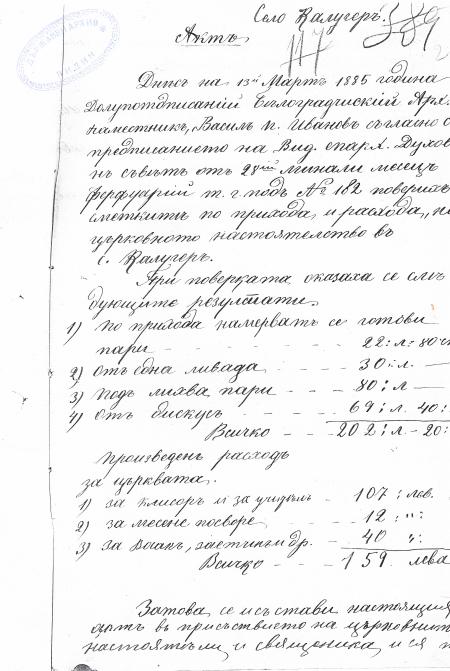 Село Калугеръ.
389
Актъ
117
ДЪРЖАВЕН АРХИВ
ВИДИН
Днесъ на 13й Мартъ 1885 година
Долуподписаний Бѣлоградчиский Арх.
наместникъ, Василъ п. Ивановъ съгласно с
предписанието на Вид. епарх. Духов
нъ съвѣтъ отъ 28ий минали месецъ
ферфуарий т. г. подъ № 182 поверихъ
сметкитѣ по прихода и расхода, на
църковното настоятелство въ
с. Калугеръ.
При поверката оказаха се слѣ
дующите резултати.
1) По прихода намерватъ се готови
пари - - - 22: л: 80 ст
2) Отъ една ливада - - - 30: л. —
3) Подъ лихва пари - - - 80: л —
4) Отъ дискусъ - - - 69: л. 40:
Всичко - - - 202: л. - 20:
Произведенъ расходъ
за църквата.
1) за клисоръ и за - 107: лев.
2) за месене посворе - - - 12: ":
3) За и др. - 40 ":
Всичко - - - 159. лева
Затова, се исъстави настоящия
актъ въ присъствието на църковнит
настоятели и священика, и ся п